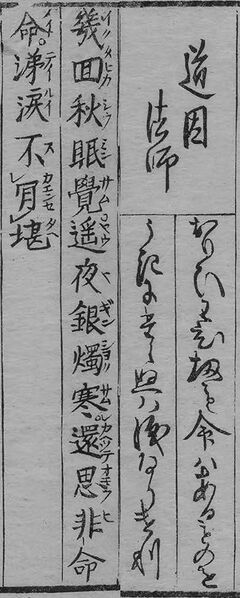 道因
法師
おもひわひ扨も命はあるものを
うきにたへぬハ涙なりけり
幾回秋眠覺遥夜銀燭寒還思非命
命。涕涙不肎堪